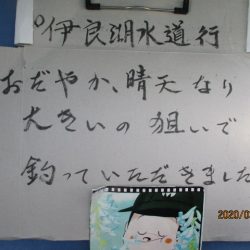 伊良湖水道行
おだやか、晴天なり
大きいの狙いで
釣っていただきました